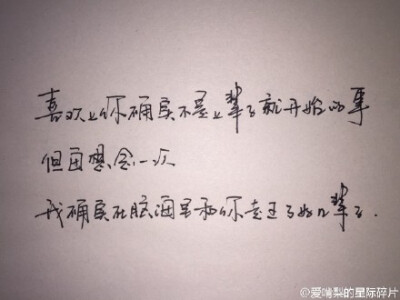 喜欢上你确实不是上辈子就开始的事
但每想念一次
我确实在脑海里和你走过了好几辈子.
@爱啃梨的星际碎片